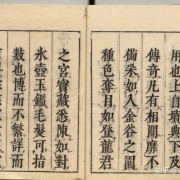 用也上自墳典下及
傳奇凡有相關靡不
備采如入金谷之園
種色奪目如登龍君
之宮寶藏悉陳如對
冰壺玉鑑毛髮可指
數也博而不繁詳而